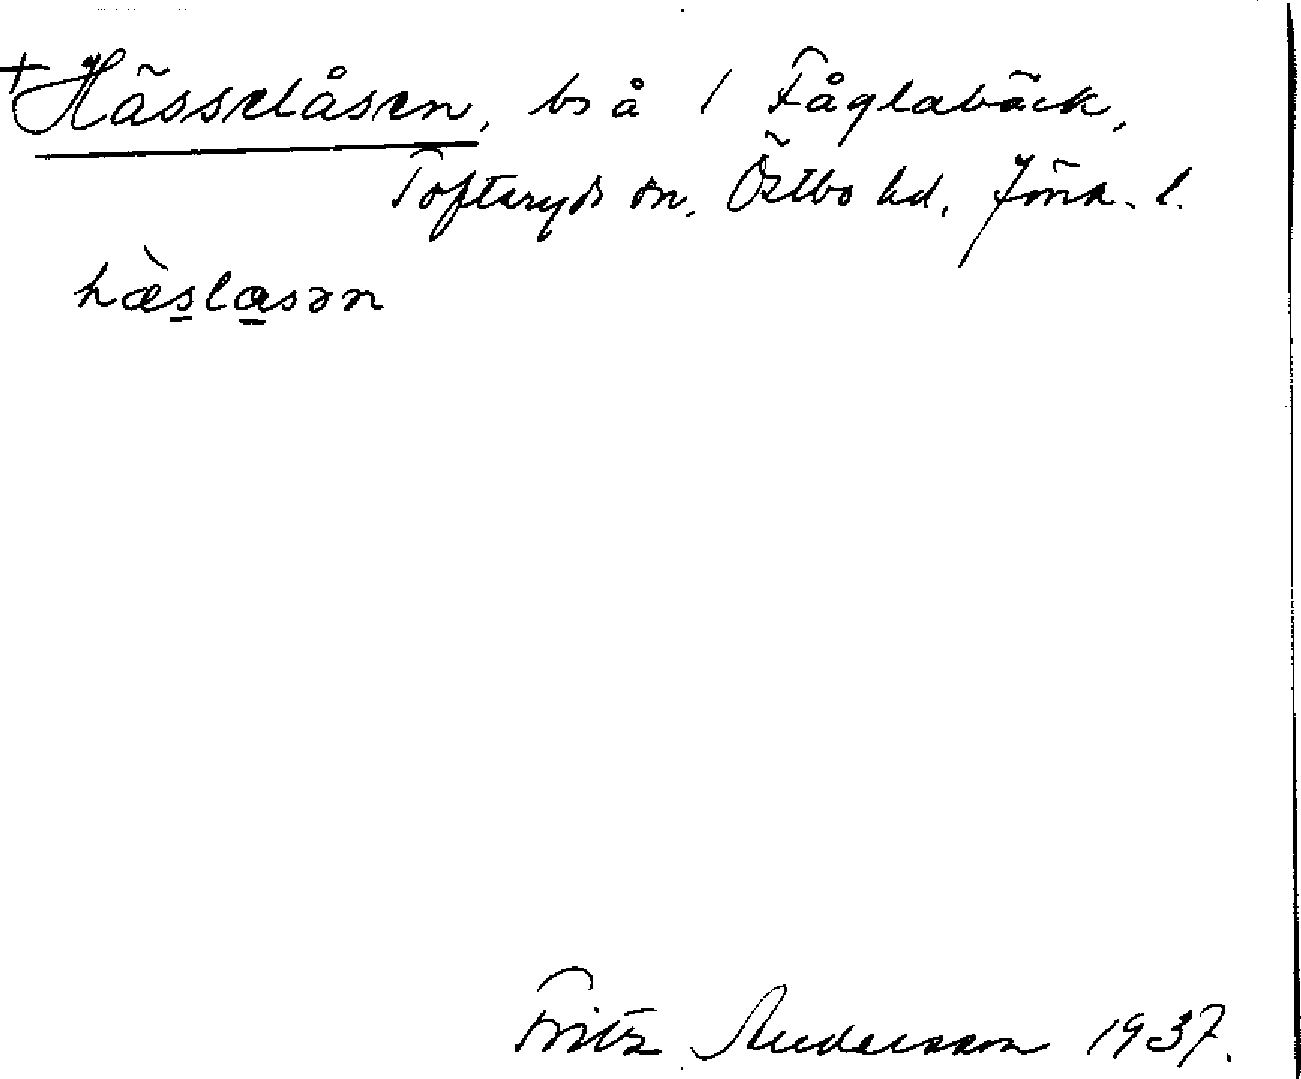 +Hässelåsen, bs å / Fåglabäck,
Tofteryds sn. Östbo hd. Jönk. l.
hæ̀slasən
Fritz Andersson 1937.